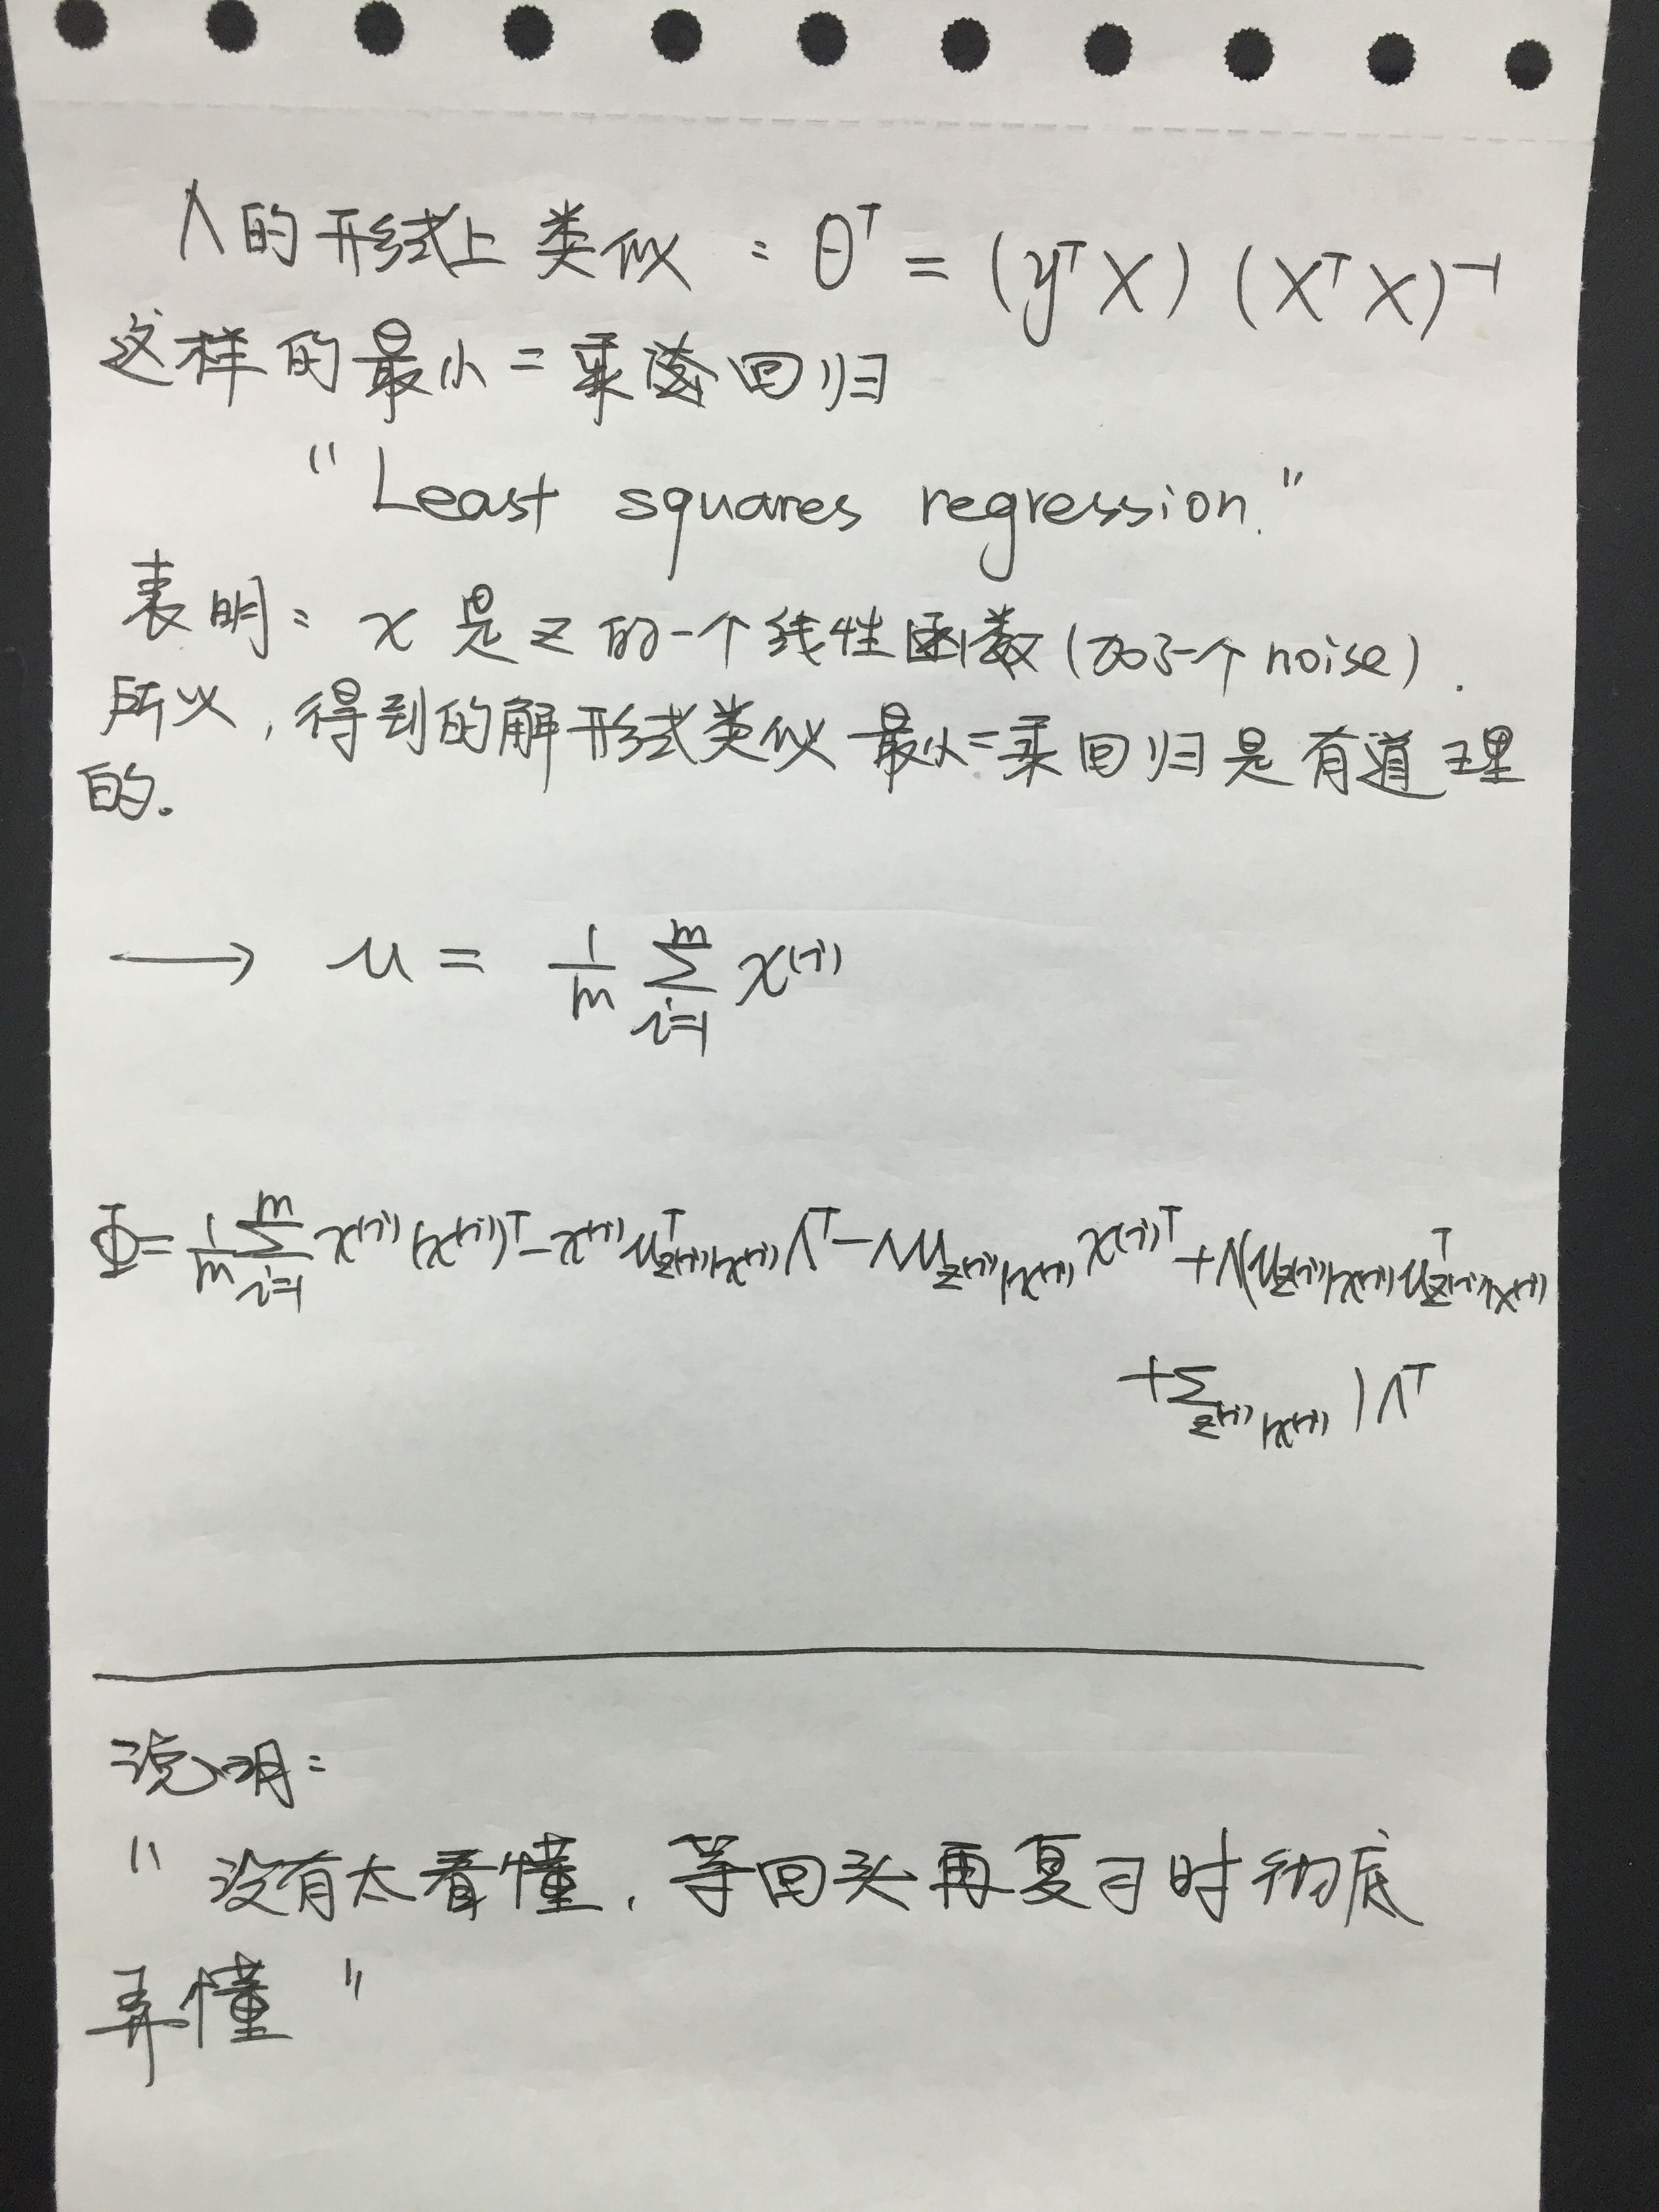 Λ的形式上类似：θᵀ = (yᵀX) (XᵀX)⁻¹
这样的最小二乘回归
"Least squares regression."
表明：x 是 z 的一个线性函数(加了一个 noise).
所以, 得到的解形式类似 最小二乘回归是有道理
的.
→ u = 1/m ∑_{i=1}^{m} x⁽ⁱ⁾
Φ = 1/m ∑_{i=1}^{m} x⁽ⁱ⁾(x⁽ⁱ⁾)ᵀ - x⁽ⁱ⁾ u_{z⁽ⁱ⁾|x⁽ⁱ⁾}ᵀ Λᵀ - Λ u_{z⁽ⁱ⁾|x⁽ⁱ⁾} x⁽ⁱ⁾ᵀ + Λ(u_{z⁽ⁱ⁾|x⁽ⁱ⁾} u_{z⁽ⁱ⁾|x⁽ⁱ⁾}ᵀ
+ Σ_{z⁽ⁱ⁾|x⁽ⁱ⁾} ) Λᵀ
说明：
"没有太看懂, 等回头再复习时彻底
弄懂"